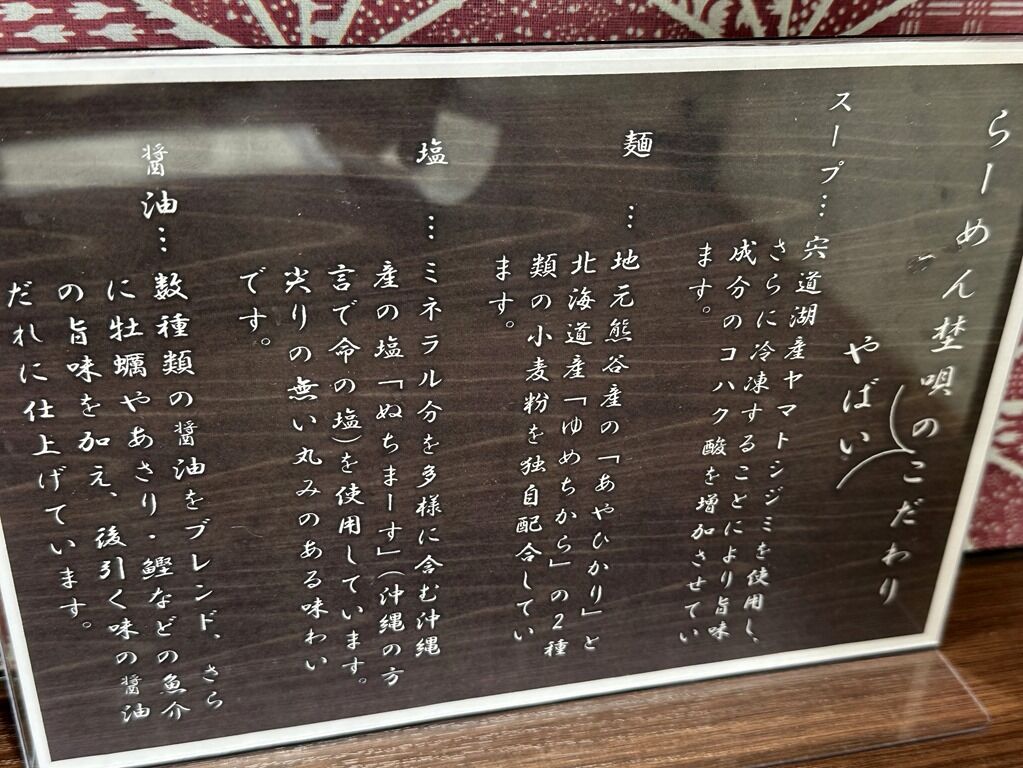 らーめん埜唄のこだわり
やばい
スープ…宍道湖産ヤマトシジミを使用し、
さらに冷凍することにより旨味
成分のコハク酸を増加させてい
ます。
麺…地元熊谷産の「あやひかり」と
北海道産「ゆめちから」の2種
類の小麦粉を独自配合してい
ます。
塩…ミネラル分を多様に含む沖縄
産の塩「ぬちまーす」(沖縄の方
言で命の塩)を使用しています。
尖りの無い丸みのある味わい
です。
醤油…数種類の醤油をブレンド、さら
に牡蠣やあさり・鰹などの魚介
の旨味を加え、後引く味の醤油
だれに仕上げています。